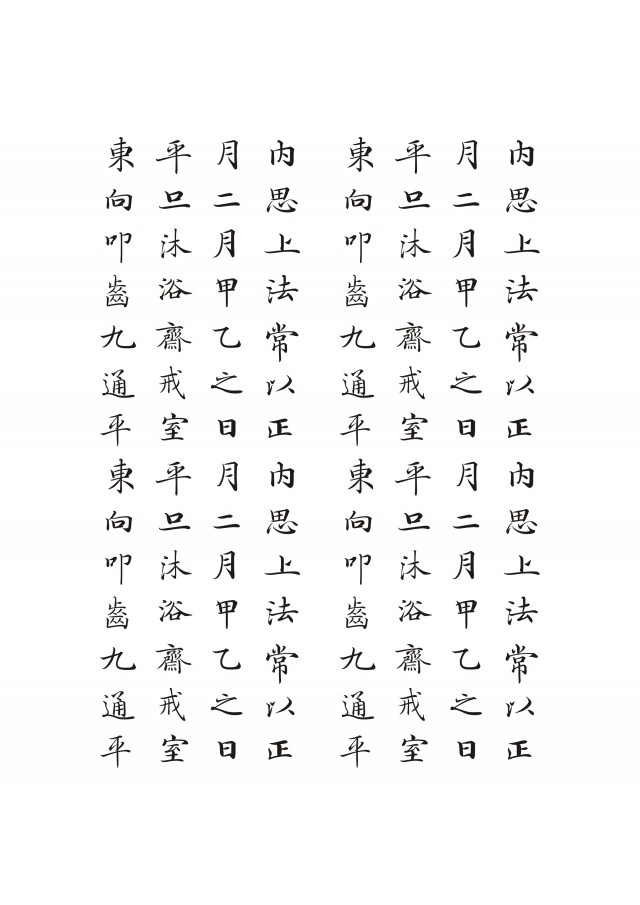 內思上法常以正內思上法常以正
月二月甲乙之日月二月甲乙之日
平旦沐浴齋戒室平旦沐浴齋戒室
東向叩齒九通平東向叩齒九通平
內思上法常以正內思上法常以正
月二月甲乙之日月二月甲乙之日
平旦沐浴齋戒室平旦沐浴齋戒室
東向叩齒九通平東向叩齒九通平